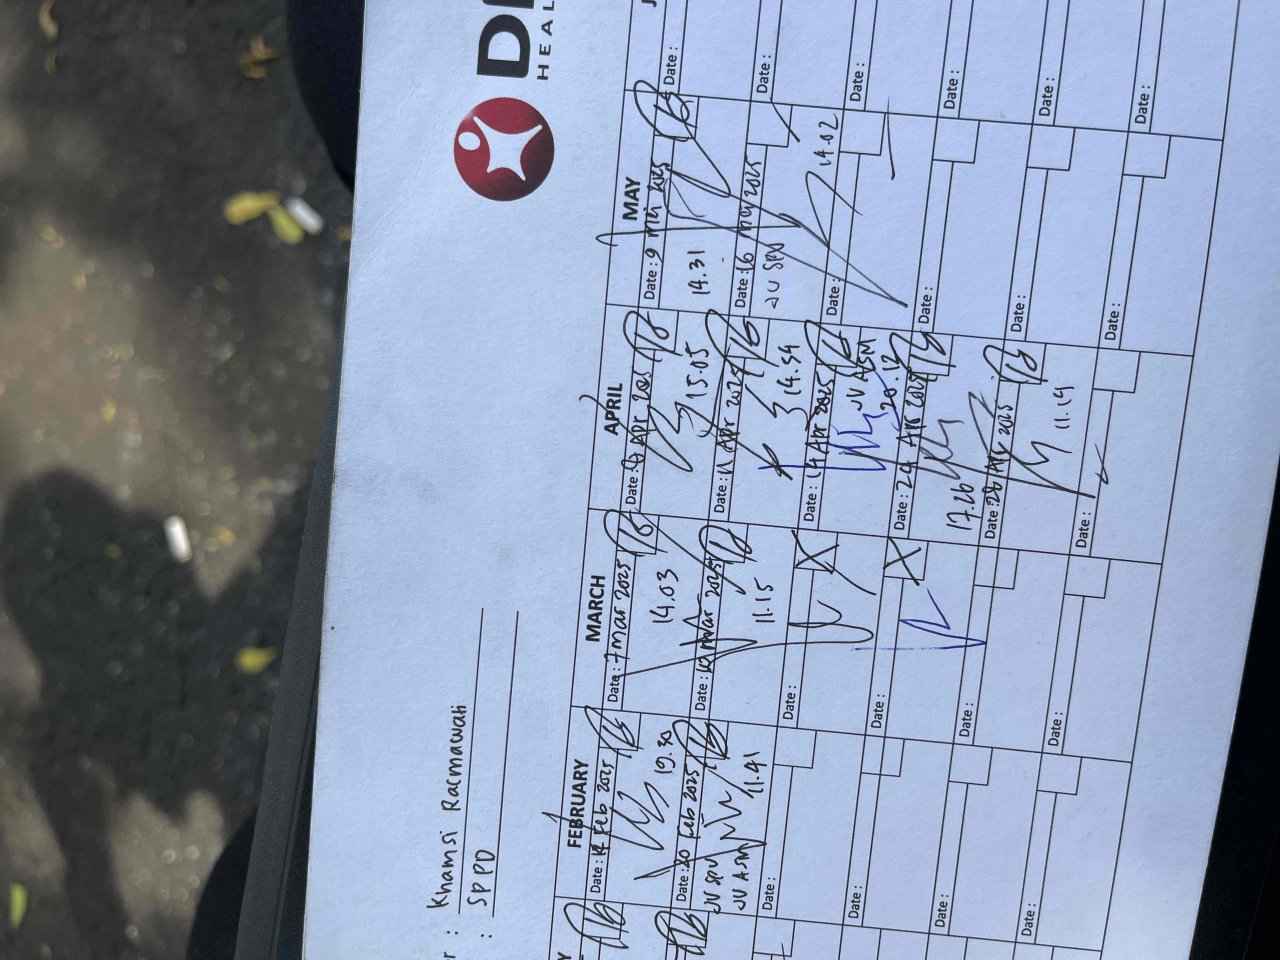 HEAL
r : Khamsi Racmawati
: SPPD
FEBRUARY
Date : 14 Feb 2025
19.30
Date : 20 Feb 2025
JV SPV
JV ASM
11.41
Date :
Date :
Date :
Date :
MARCH
Date : 7 mar 2025
14.03
Date : mar 2025
11.15
Date :
Date :
Date :
Date :
APRIL
Date : Apr 2025
15.05
Date : 11 Apr 2025
14.54
Date : Apr 2025
JV ASM
20.12
Date : 24 Apr 2025
17.26
Date : 2025
11.14
Date :
MAY
Date : 9 mei 2025
14.31
Date : 16 may 2025
JV SPV
14.02
Date :
Date :
Date :
Date :
Date :
Date :
Date :
Date :
Date :
Date :